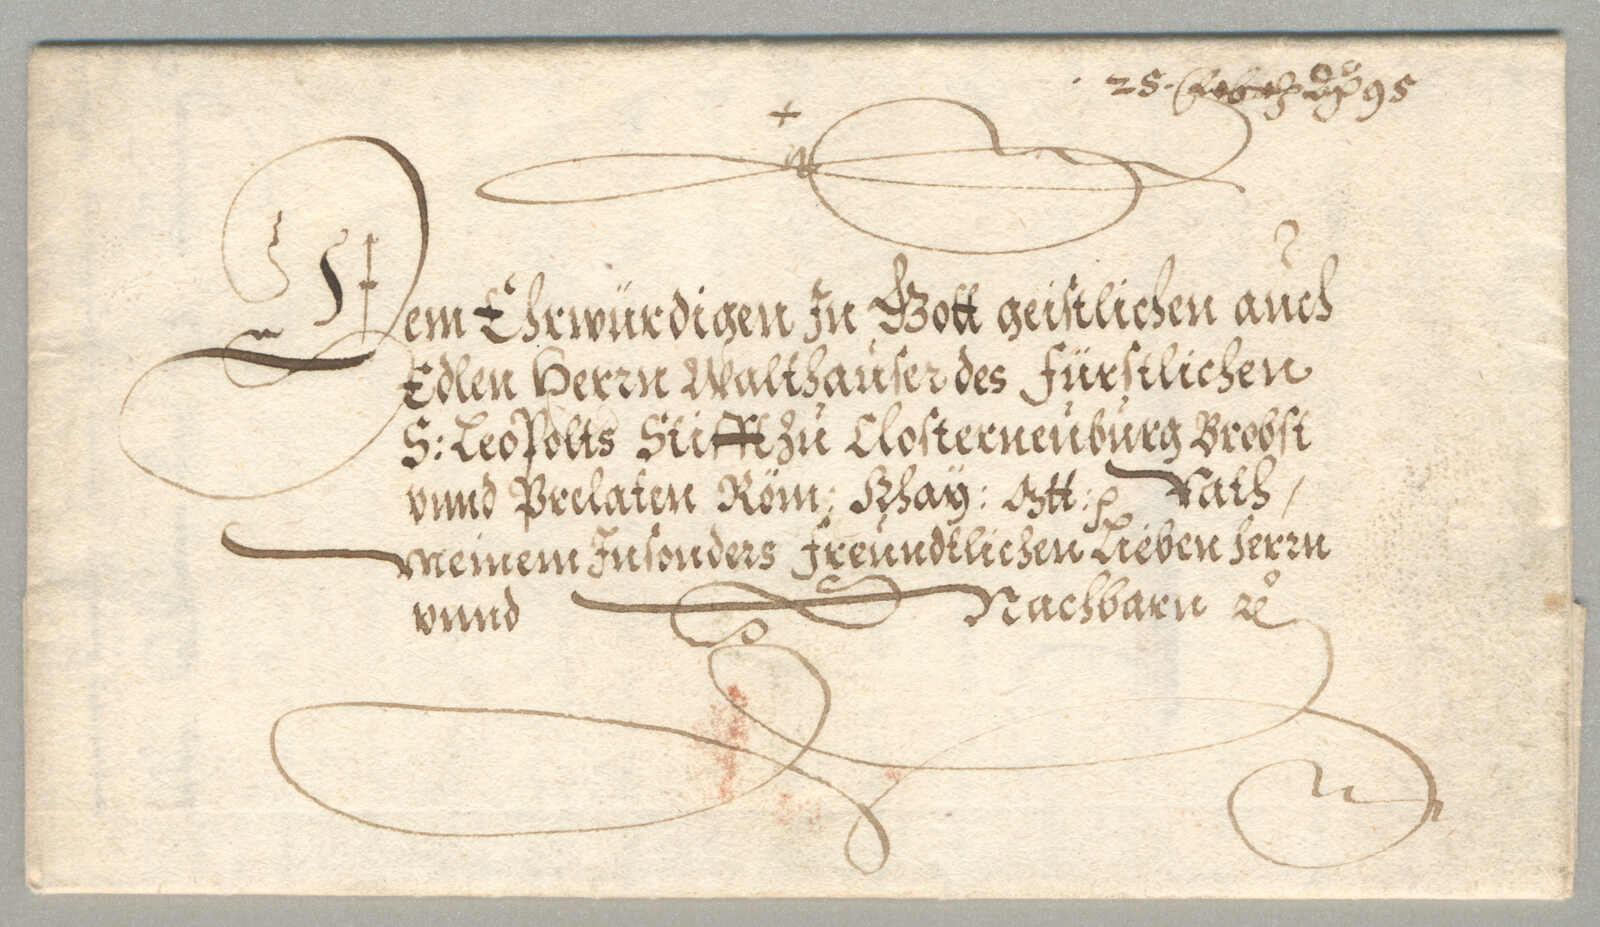 25. Febru: Ao 95
Dem Ehrwürdigen In Gott geistlichen auch
Edlen Herrn Walthauser des Fürstlichen
S: Leopolts Stifft zu Closterneuburg Brobst
vnnd Prelaten Röm: Khay: Mtt: Rath /
Meinem Insonders Freundtlichen Lieben herrn
vnnd Nachbarn